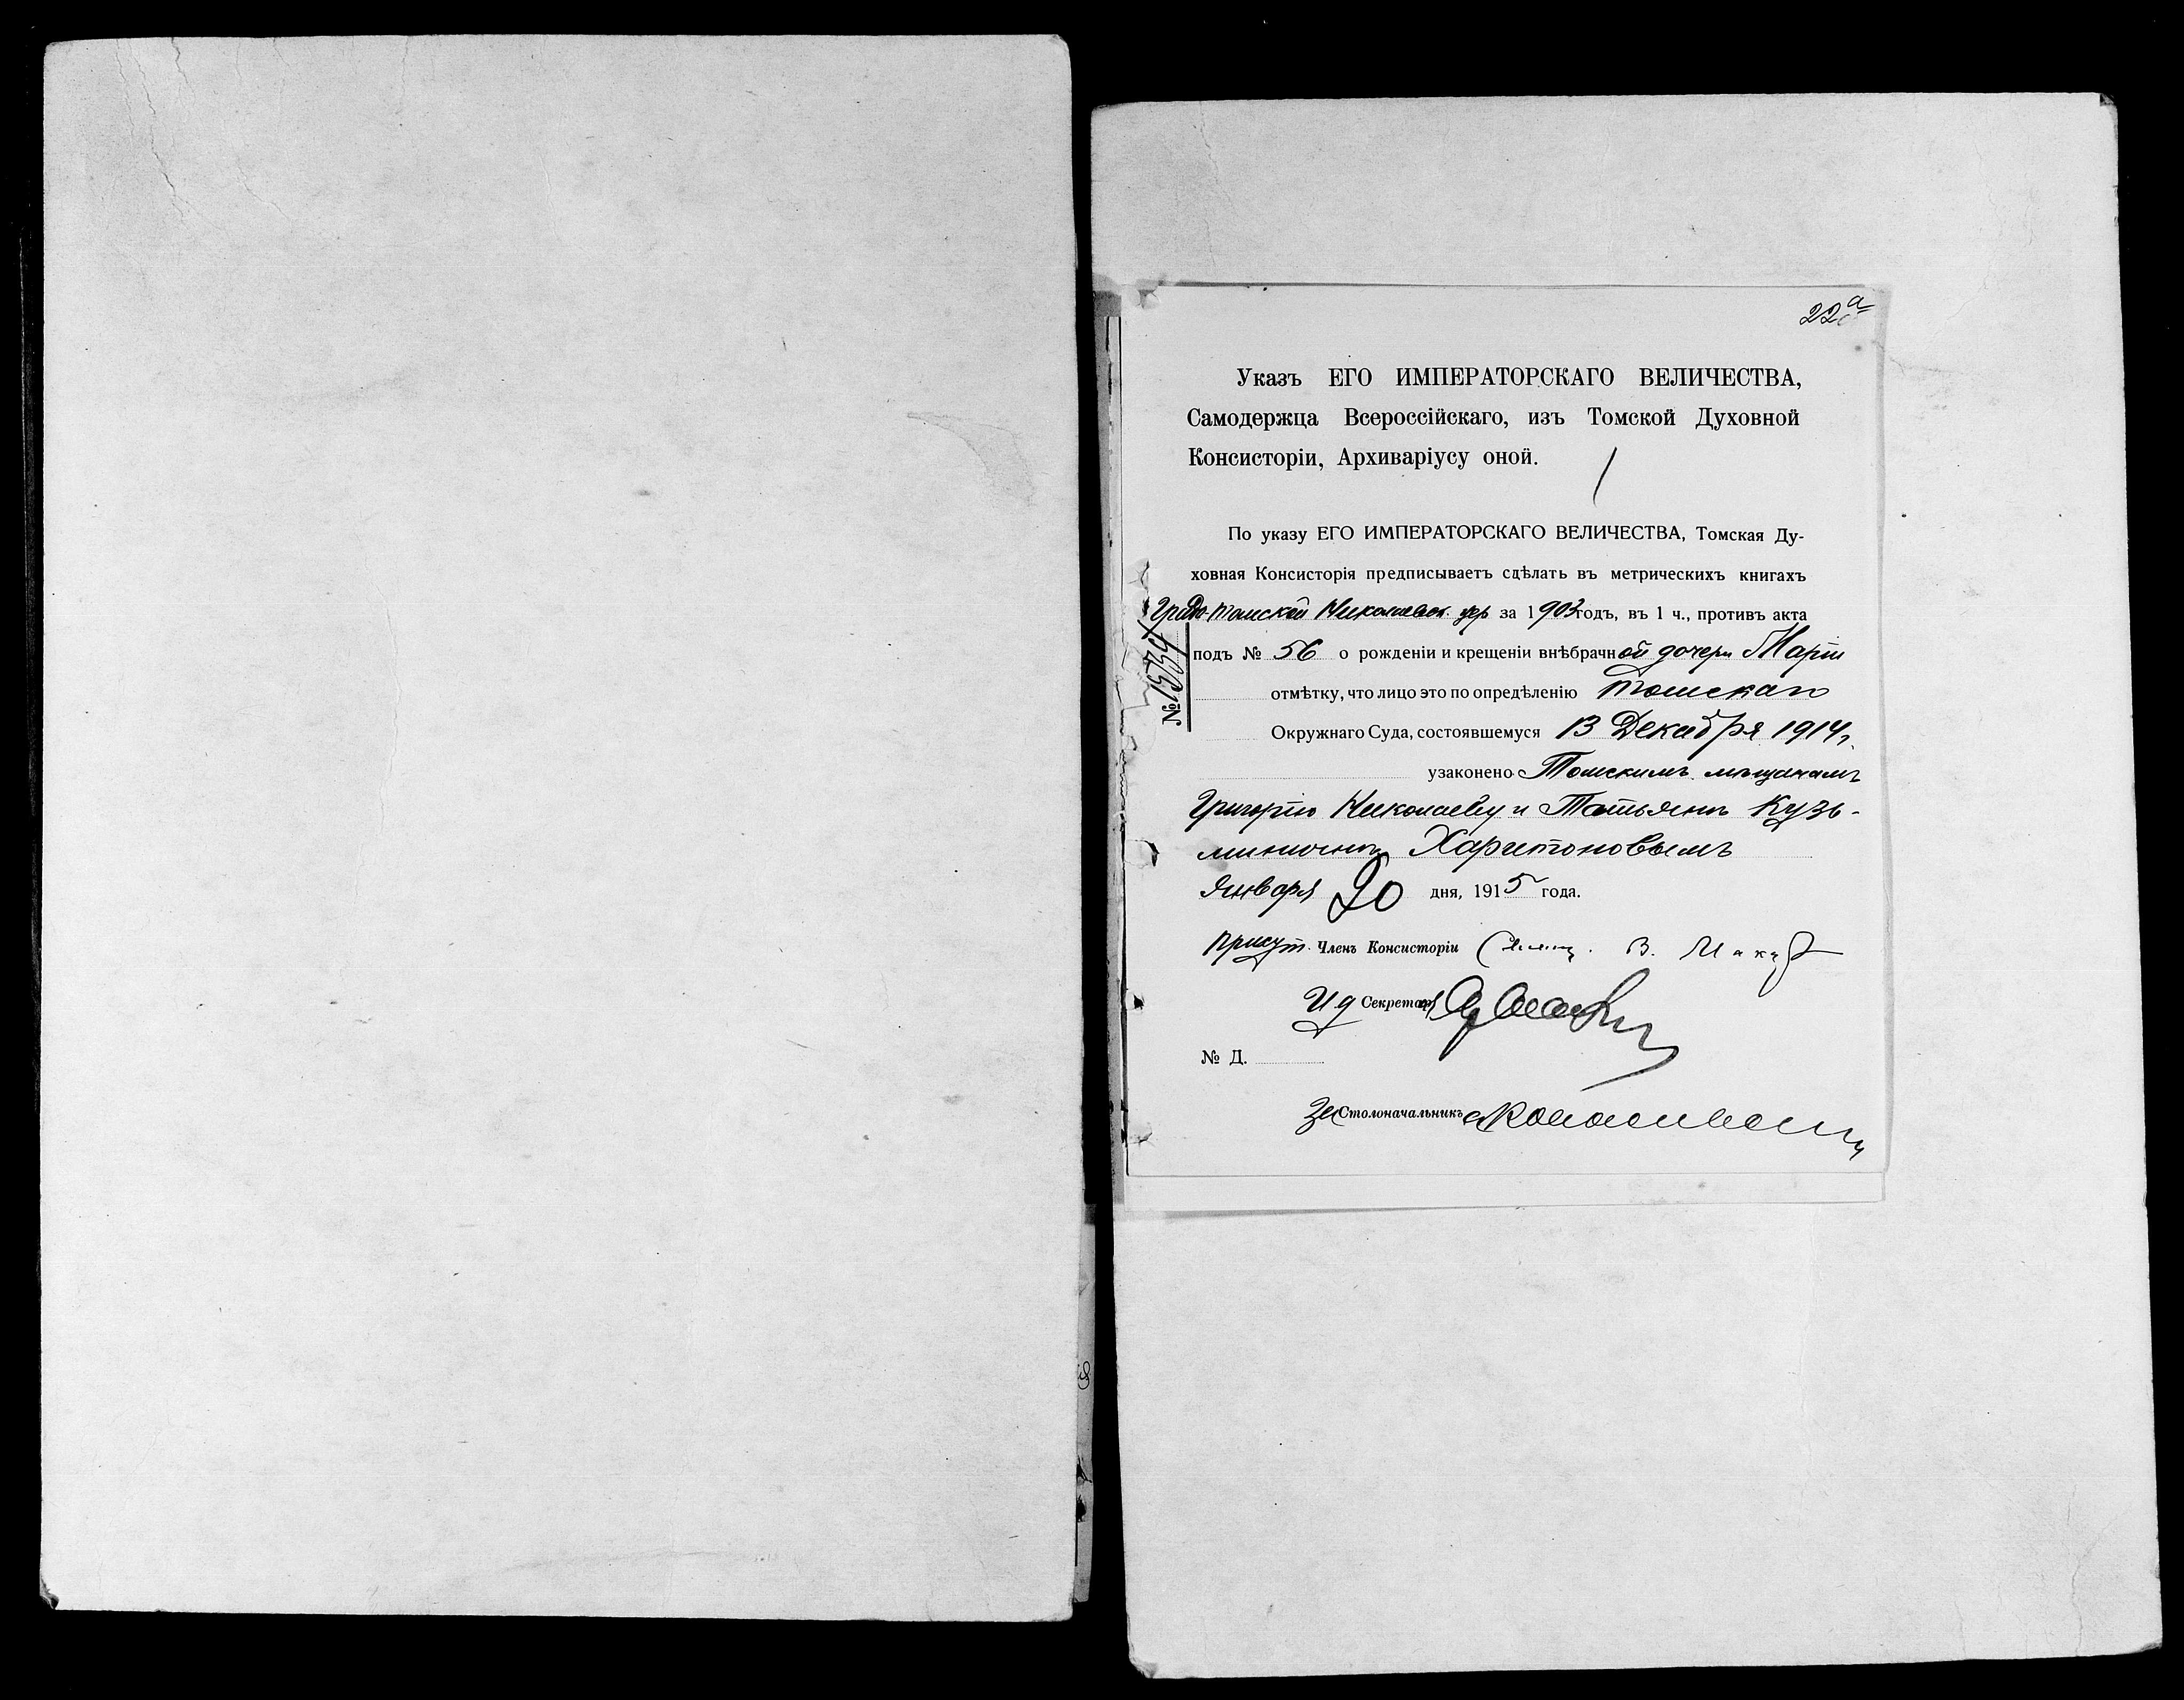 22а
Указъ ЕГО ИМПЕРАТОРСКАГО ВЕЛИЧЕСТВА,
Самодержца Всероссійскаго, изъ Томской Духовной
Консисторіи, Архиваріусу оной.
По указу ЕГО ИМПЕРАТОРСКАГО ВЕЛИЧЕСТВА, Томская Ду-
ховная Консисторія предписываетъ сдѣлать въ метрическихъ книгахъ
Градо-Томской Николаевск. цер за 1903 годъ, въ 1 ч., противъ акта
подъ № 56 о рожденіи и крещеніи внѣбрачной дочери Маріи
отмѣтку, что лицо это по опредѣленію Томскаго
Окружнаго Суда, состоявшемуся 13 Декабря 1914 г.
узаконено Томскимъ мѣщанамъ
Григорію Николаеву и Татьянѣ Кузь-
миничнѣ Харитоновымъ
Января 20 дня, 1915 года.
Присут. Членъ Консисторіи В.
И д Секретаря
№ Д.
За Столоначальника
№